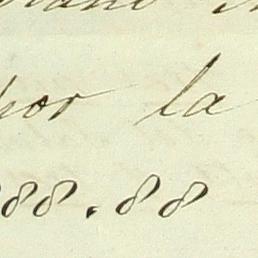 por la
888.88